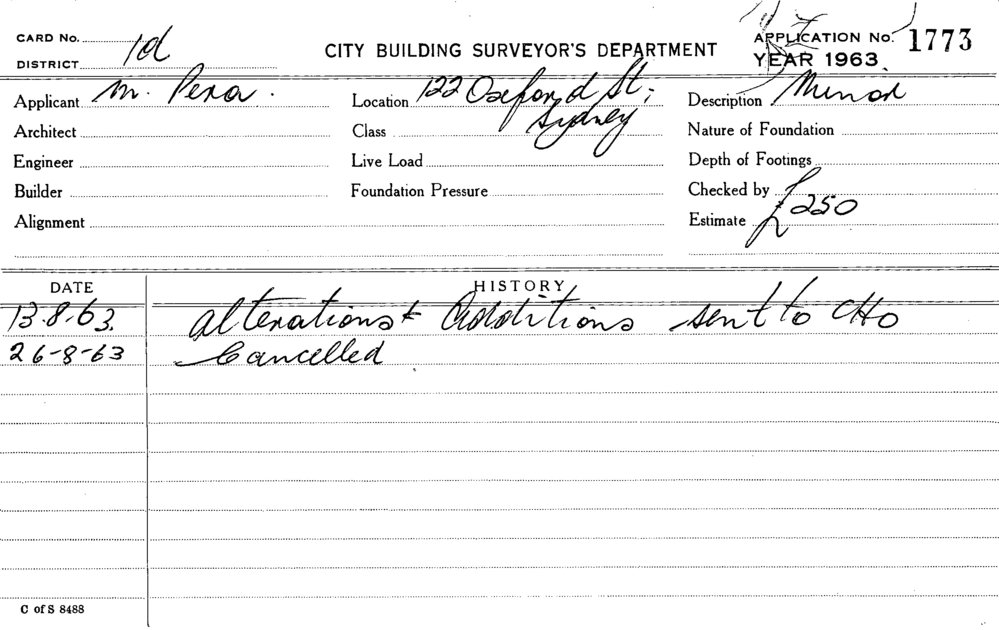 CARD No.
DISTRICT 1d
CITY BUILDING SURVEYOR'S DEPARTMENT
APPLICATION No. 1773
YEAR 1963.
Applicant M. Pera.
Location 122 Oxeford St,
Sydney
Description Minor
Architect
Class
Nature of Foundation
Engineer
Live Load
Depth of Footings
Builder
Foundation Pressure
Checked by
Alignment
Estimate £250
DATE
HISTORY
13.8.63. Alterations & Additions sent to CHO
26-8-63 Cancelled
C of S 8488